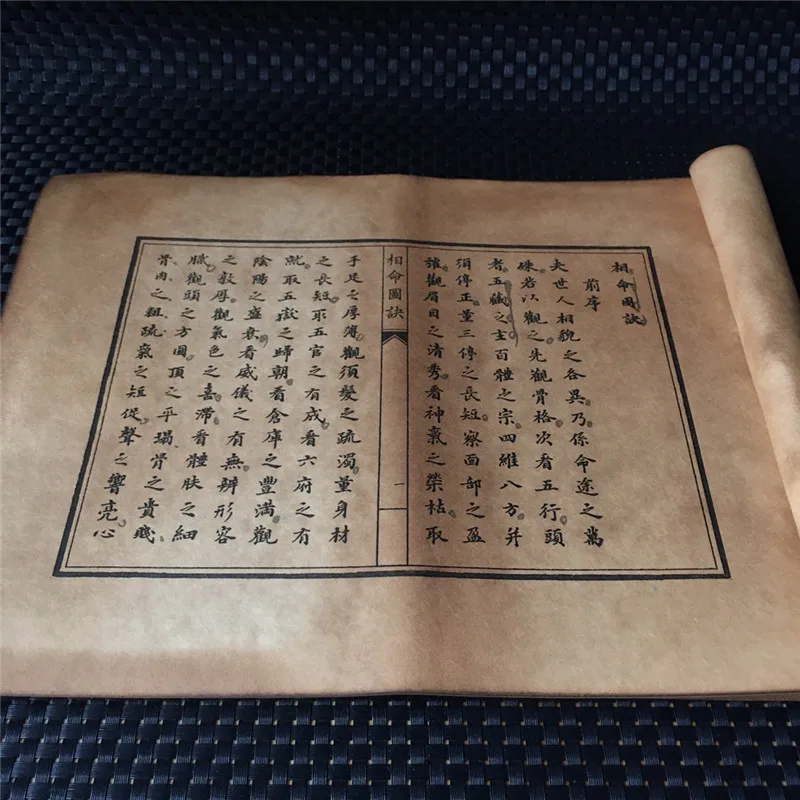 相命圖訣
前序
夫世人相貌之各異。乃係命途之萬
殊。若以觀之。先觀骨格。次看五行。頭
者。五嶽之主。百體之宗。四維八方。并
須停正。量三停之長短。察面部之盈
觀眉目之清秀。看神氣之榮枯。取
相命圖訣
一
手足之厚薄。觀須髮之疏濁。量身材
之長短。取五官之有成。看六府之有
就。取五嶽之歸朝。看倉庫之豐滿。觀
陰陽之盛衰。看威儀之有無。辨形容
之敦厚。觀氣色之喜滯。看體肤之細
膩。觀頭之方圓。頂之平塌。骨之貴賤、
骨肉之粗疏。氣之短促。聲之響亮。心